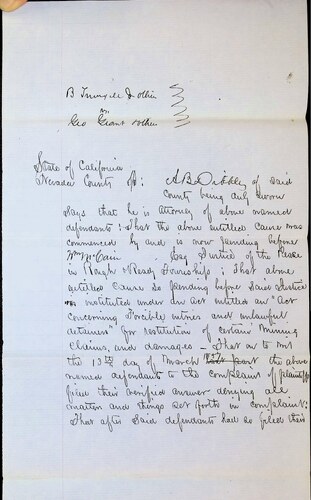 B Trimper & other
vs
Geo Grant & other
State of California
Nevada County ss: A B Dibbley of said
County being duly sworn
says that he is Attorney of above named
defendants: That the above entitled cause was
commenced by and is now pending before
Wm McCain Esq Justice of the Peace
in Rough & Ready Township: That above
entitled cause so pending before said Justice
was instituted under an act entitled an "act
concerning Forcible entries and unlawful
detainers" for restitution of certain mining
Claims, and damages - That on to wit
the 13th day of March the above
named defendants to the complaint of plaintiffs
filed their verified answer denying all
matters and things set forth in complaint:
That after said defendants had so filed their